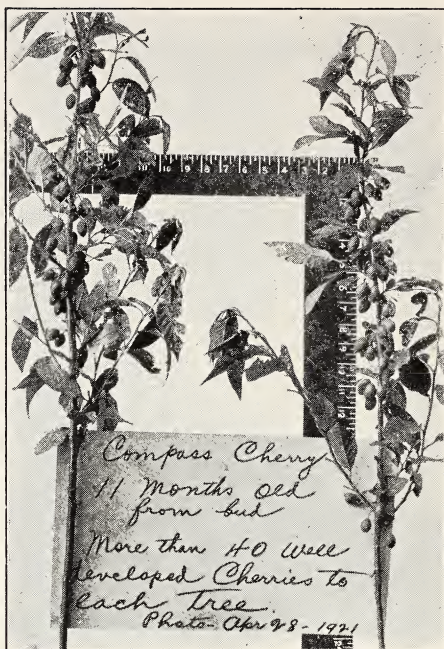 11 10 9 8 7 6 5 4 3 2
Compass Cherry
11 Months old
from bud
More than 40 well
developed Cherries to
each tree.
Photo - Apr 28 - 1921